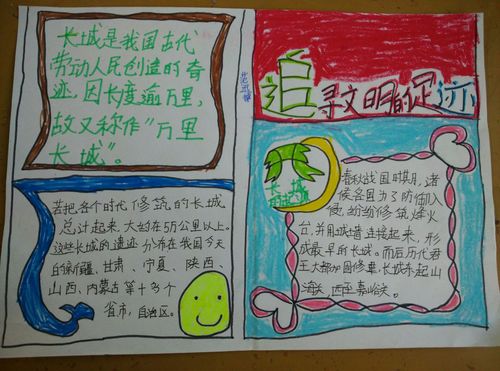 长城是我国古代
劳动人民创造的奇
迹,因长度逾万里,
故又称作“万里
长城”。
追寻文明的足迹
若把各个时代修筑的长城
总计起来,大约在5万公里以上。
这些长城的遗迹分布在我国今天
甘肃、宁夏、陕西、
山西、内蒙古等十多个
省市,自治区。
长城
春秋战国时期,诸
侯各国为了防御
纷纷修筑烽火
台,并用城墙连接起来,形
成最早的长城。而后历代君
王大都加固修
长城东起山
海关,西至嘉峪关。